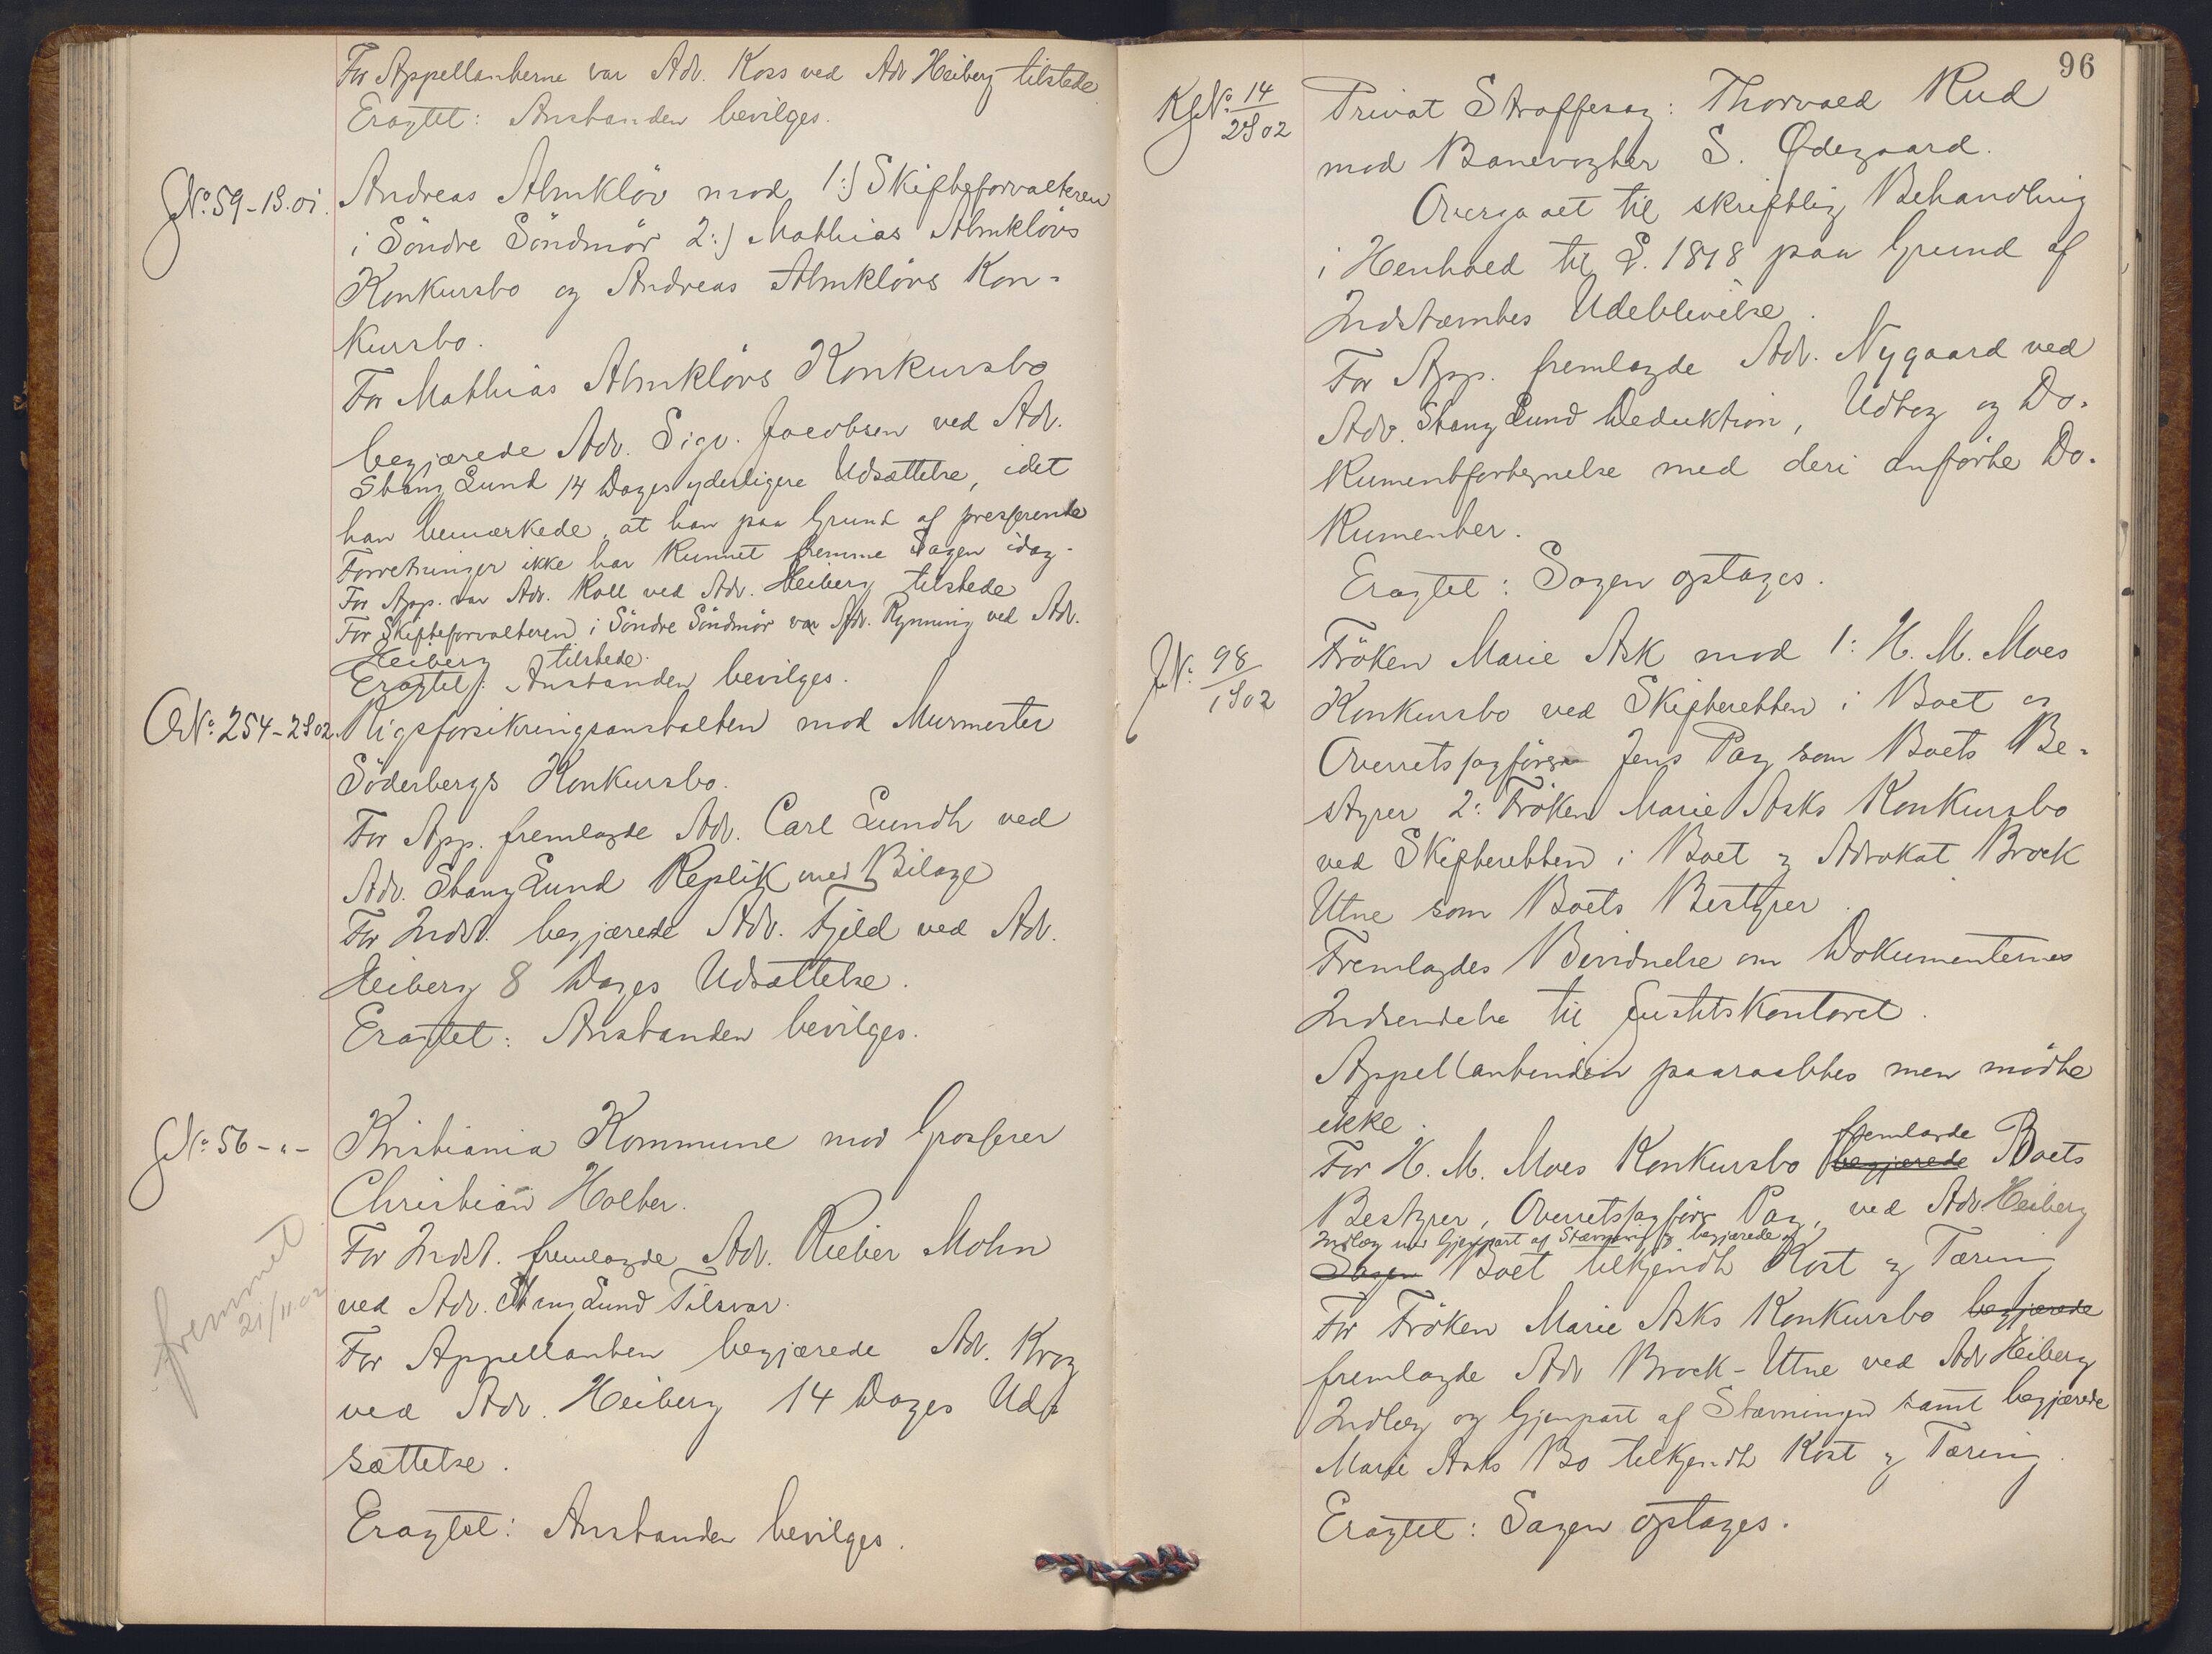 For Appellanterne var Adv. Koss ved Adv Heiberg tilstede
Eragtet: Anstanden bevilges.
No. 59-1S.01.
Andreas Almkløv mod 1:) Skifteforvalteren
i Söndre Söndmör 2:) Mathias Almklövs
Konkursbo og Andreas Almklövs Kon-
kursbo.
For Mathias Almklövs Konkursbo
begjærede Adv. Sigv. Jacobsen ved Adv.
Stang Lund 14 Dages yderligere Udsættelse, idet
han bemærkede, at han paa Grund af presserende
Forretninger ikke har kunnet fremme Sagen idag.
For App. var Adv. Roll ved Adv. Heiberg tilstede
For Skifteforvalteren i Söndre Söndmör var Adv. Rynning ved Adv.
Heiberg tilstede.
Eragtet: Anstanden bevilges.
No. 254-2S02.
Rigsforsikringsanstalten mod Murmester
Söderbergs Konkursbo.
For App. fremlagde Adv. Carl Lundh ved
Adv. Stang Lund Replik med Bilage
For Indst. begjærede Adv. Fjeld ved Adv.
Heiberg 8 Dages Udsættelse.
Eragtet: Anstanden bevilges.
No. 56 - " -
Kristiania Kommune mod Grosserer
Christian Holter.
For Indst. fremlagde Adv. Rieber Mohn
ved Adv. Stang Lund Tilsvar.
fremmet
21/11.02
For Appellanten begjærede Adv. Krog
ved Adv. Heiberg 14 Dages Ud-
sættelse.
Eragtet: Anstanden bevilges.
96
No. 14
2S02
Privat Straffesag: Thorvald Rud
mod Banevogter S. Ødegaard.
Overgaaet til skriftlig Behandling
i Henhold til L. 1818 paa Grund af
Indstæmtes Udeblivelse.
For App. fremlagde Adv. Nygaard ved
Adv. Stang Lund Deduktion, Udtog og Do-
kumentfortegnelse med deri anförte Do-
kumenter.
Eragtet: Sagen optages.
No. 98
1S02
Fröken Marie Ask mod 1: H. M. Moes
Konkursbo ved Skifteretten i Boet og
Overretssagförer Jens Pay som Boets Be-
styrer 2: Fröken Marie Asks Konkursbo
ved Skifteretten i Boet og Advokat Brock
Utne som Boets Bestyrer.
Fremlagdes Bevidnelse om Dokumenternes
Indsendelse til Justitskontoret.
Appellantinden paaraabtes men mödte
ikke.
For H. M. Moes Konkursbo begjærede fremlagde Boets
Bestyrer, Overretssagförer Pay, ved Adv Heiberg
Indlæg med Gjenpart af Stævning og begjærede
Sagen Boet tilkjendt Kost og Tæring
For Fröken Marie Asks Konkursbo begjærede
fremlagde Adv Brock-Utne ved Adv Heiberg
Indlæg og Gjenpart af Stævningen samt begjærede
Marie Asks Bo tilkjendt Kost og Tæring.
Eragtet: Sagen optages.